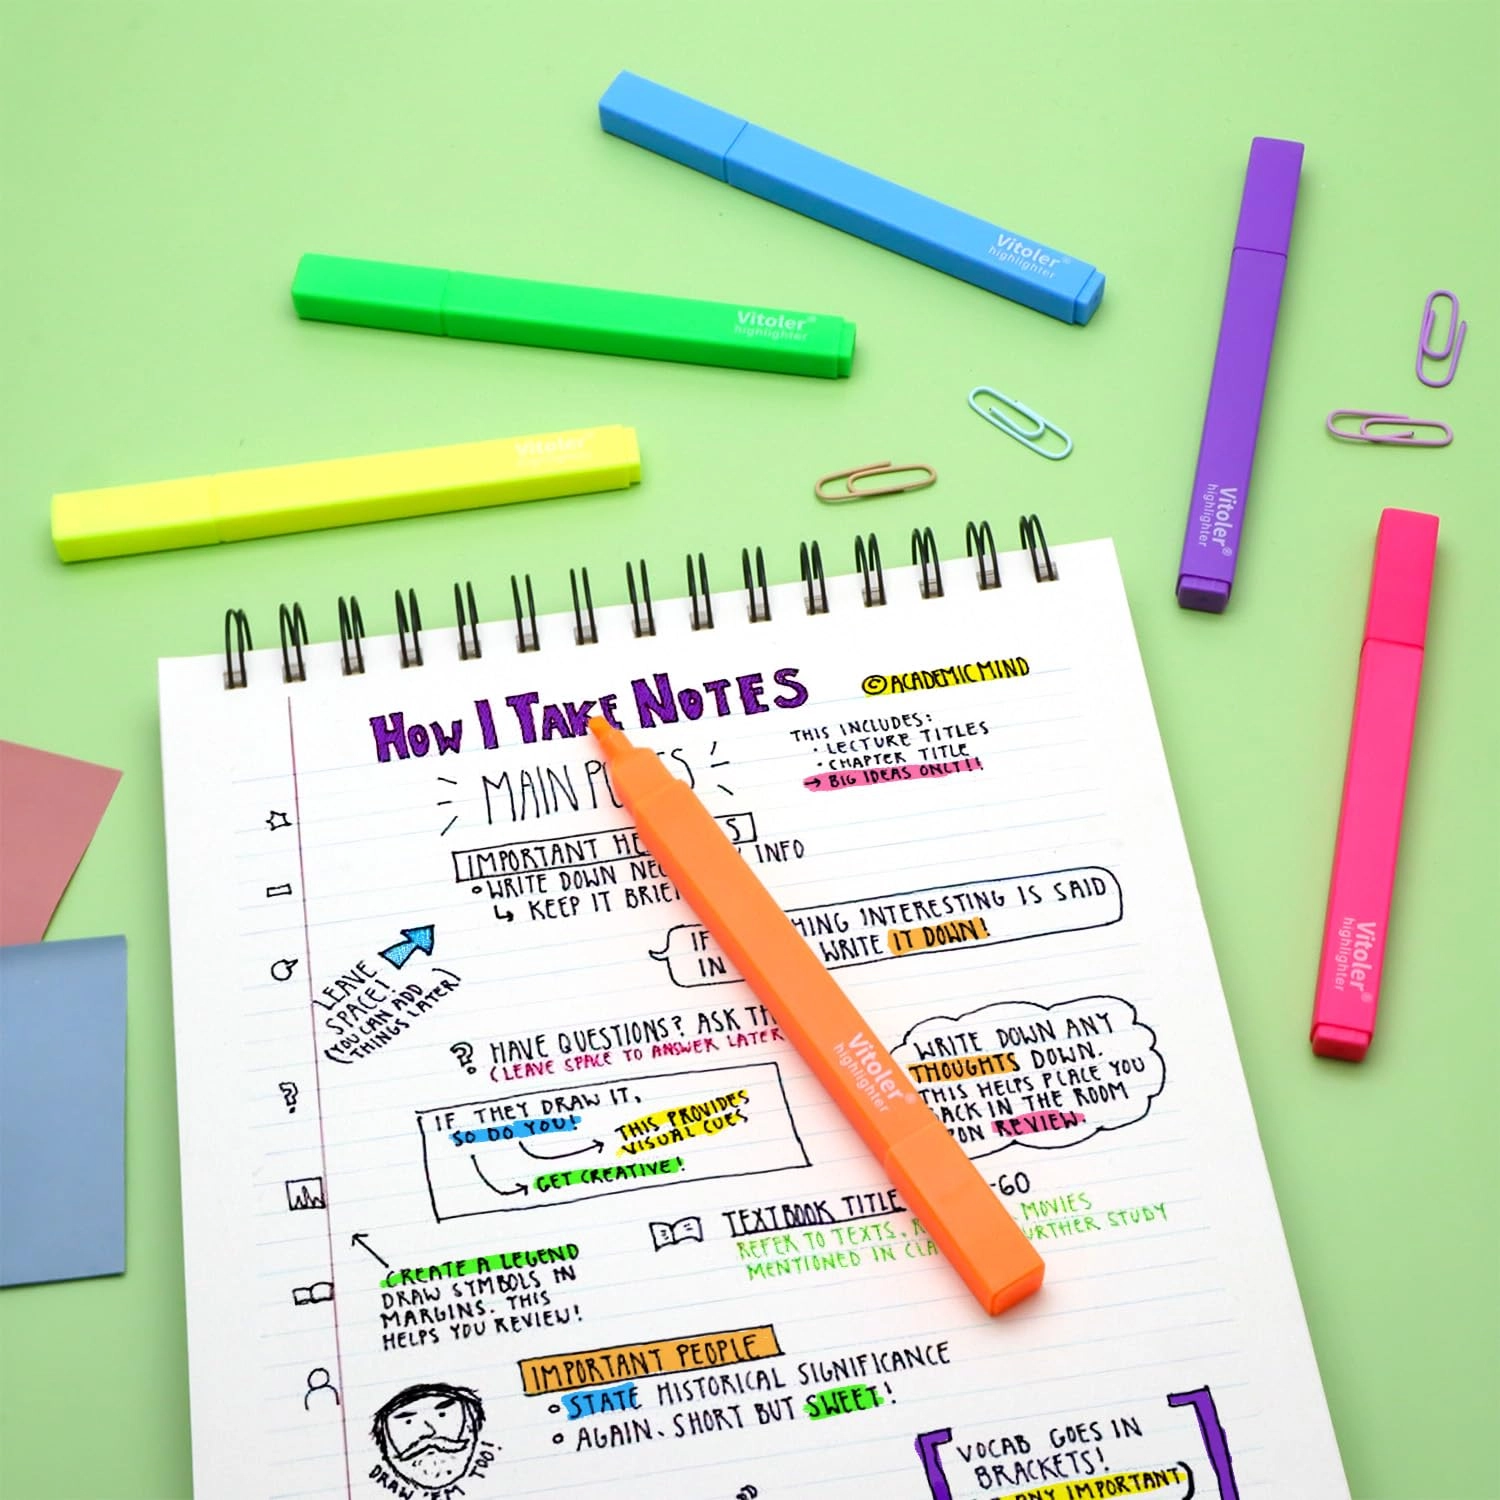 Vitoler®
highlighter
Vitoler®
highlighter
Vitoler®
highlighter
Vitoler
highlighter
Vitoler®
highlighter
HOW I TAKE NOTES
© ACADEMIC MIND
THIS INCLUDES:
• LECTURE TITLES
• CHAPTER TITLE
→ BIG IDEAS ONLY!!
MAIN
IMPORTANT
WRITE DOWN INFO
↳ KEEP IT
IF INTERESTING IS SAID
IN WRITE IT DOWN!
LEAVE
SPACE!
(YOU CAN ADD
THINGS LATER)
? HAVE QUESTIONS? ASK
(LEAVE SPACE TO ANSWER LATER
WRITE DOWN ANY
THOUGHTS DOWN.
THIS HELPS PLACE YOU
IN THE ROOM
REVIEW.
Vitoler®
highlighter
IF THEY DRAW IT,
SO DO YOU!
THIS PROVIDES
VISUAL CUES
GET CREATIVE!
TEXTBOOK TITLE -60
REFER TO TEXTS, MOVIES
MENTIONED IN STUDY
CREATE A LEGEND
DRAW SYMBOLS IN
MARGINS. THIS
HELPS YOU REVIEW!
IMPORTANT PEOPLE
STATE HISTORICAL SIGNIFICANCE
AGAIN, SHORT BUT SWEET!
DRAW 'EM TOO!
VOCAB GOES IN
BRACKETS!
ANY IMPORTANT